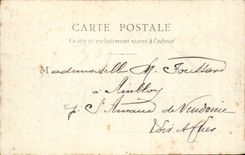 CARTE POSTALE
Ce côté est exclusivement réservé à l'adresse
Mademoiselle M.
à
p. St Amand de Vendôme
Loir & Cher